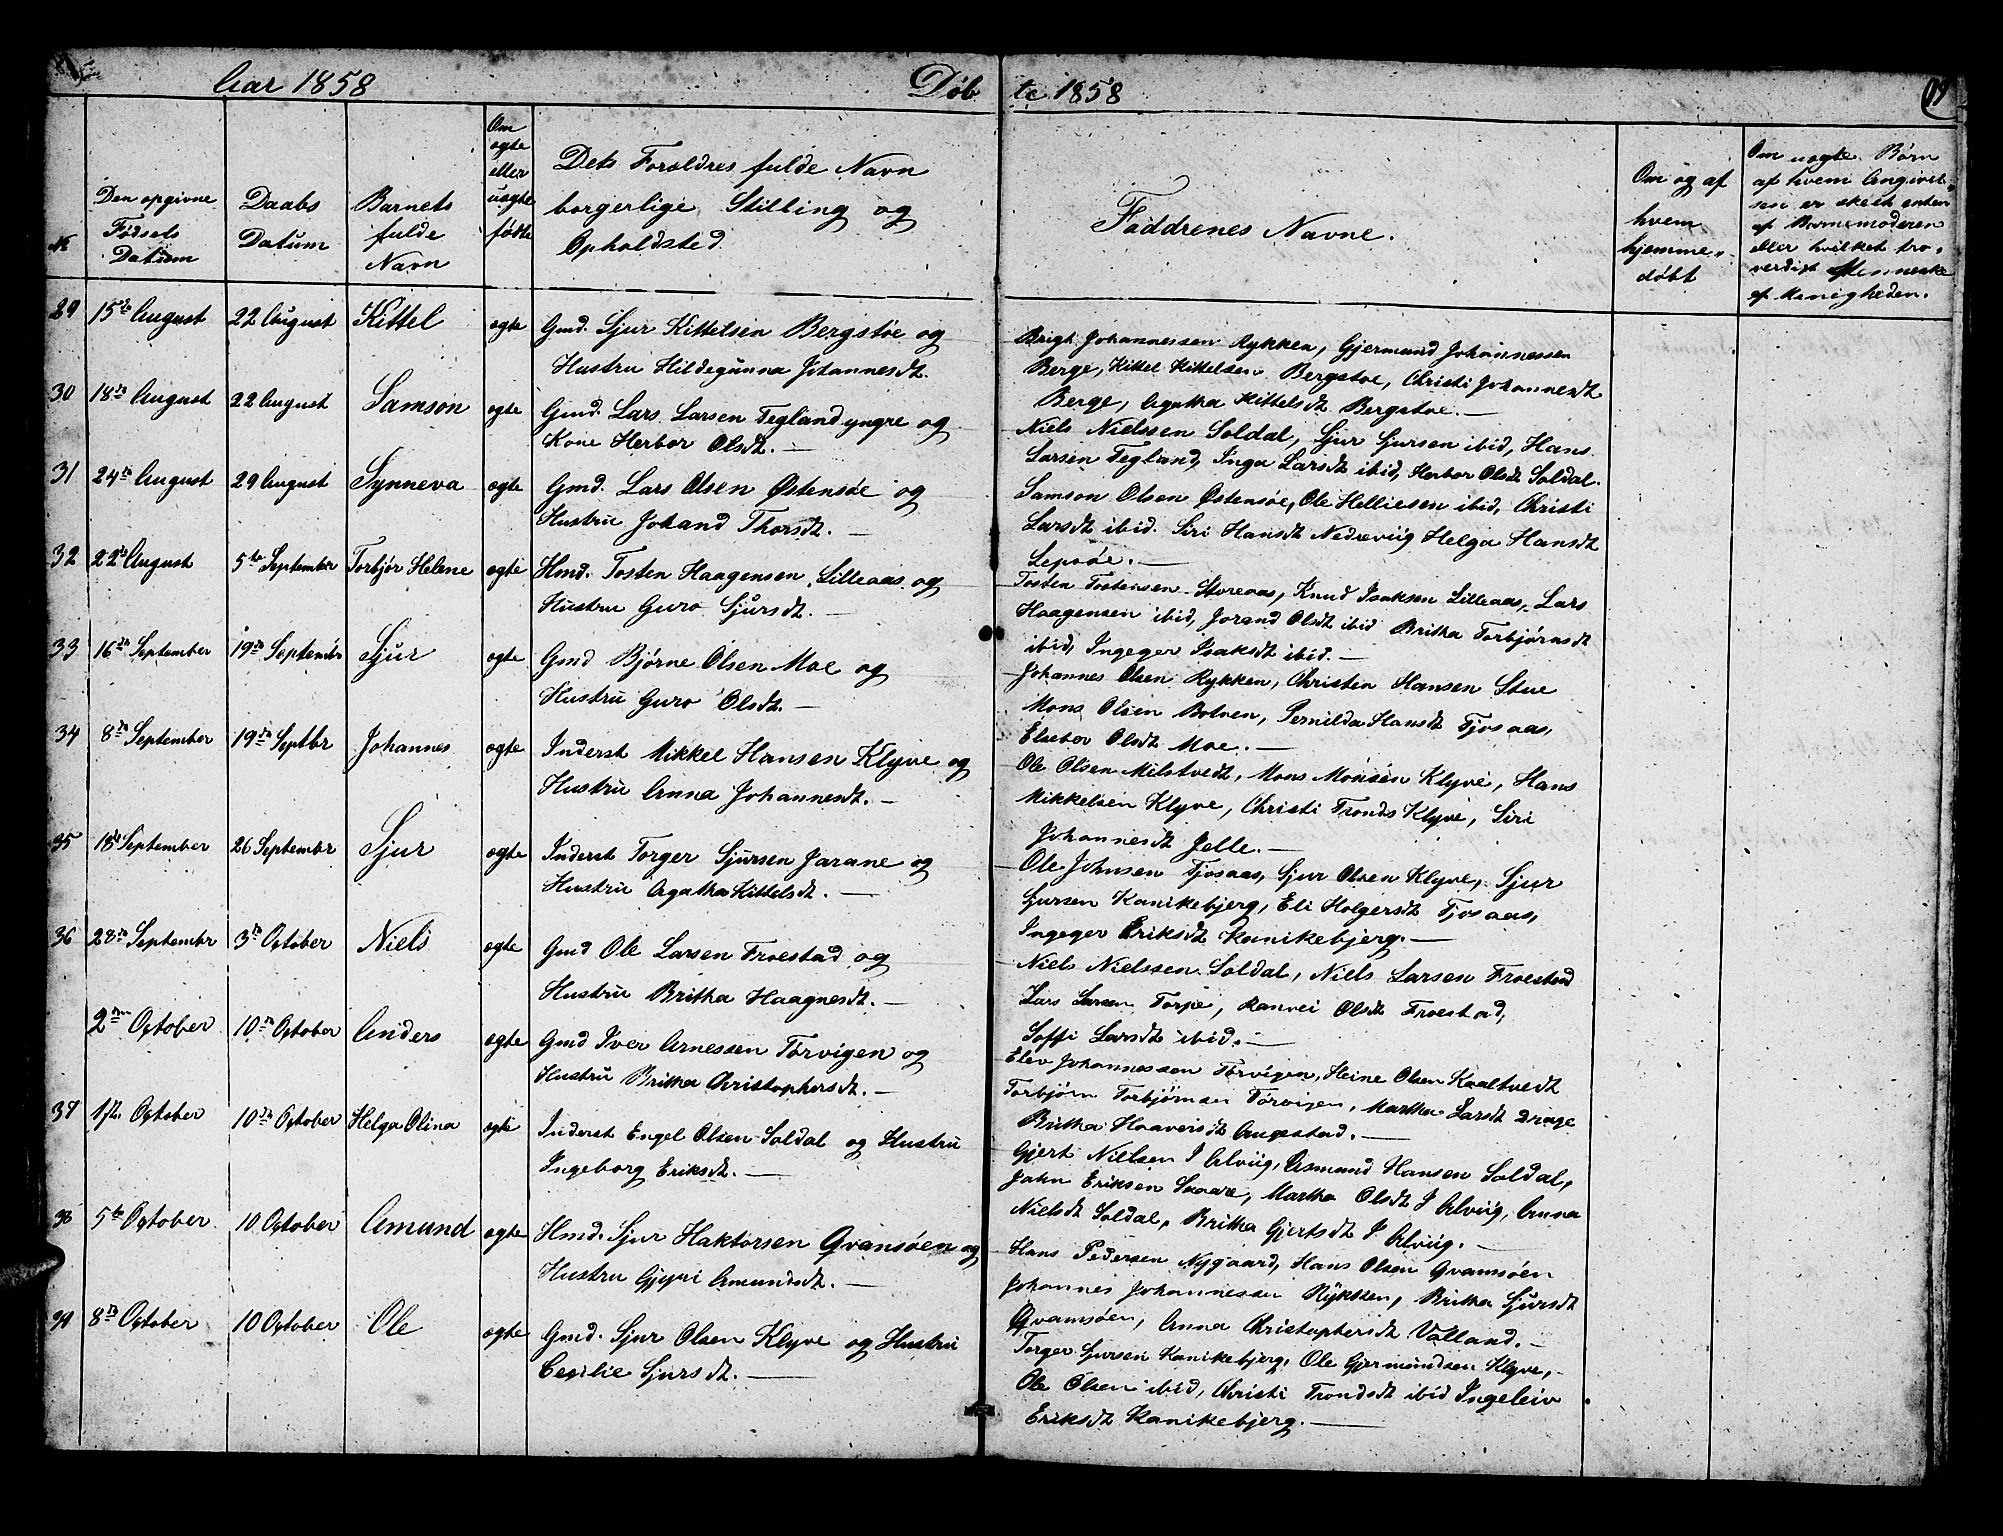 Aar 1858
Døb te 1858
19
№
Den opgivne
Fødsels
Datum
Daabs
Datum
Barnets
fulde
Navn
Om
ægte
eller
uægte
fødte
Dets Forældres fulde Navn
borgerlige Stilling og
Opholdsted.
Faddrenes Navne.
Om og af
hvem
hjemme-
døbt
Om uægte Børn
af hvem Angivel-
sen er skeet enten
af Barnemoderen
eller hvilket tro-
værdigt Menneske
af Menigheden.
29 15de August 22 August Kittel ægte Gmd. Sjur Kittelsen Bergstøe og
Hustru Hildegunna Johannesdt.
Brigt Johannessen Rykken, Gjermund Johannessen
Berge, Kittel Kittelsen Bergstøe, Christi Johannesdt
Berge, Agatha Kittelsdt Bergstøe. —
30 18de August 22 August Samson ægte Gmd. Lars Larsen Tegland yngre og
Kone Herbor Olsdt. —
Niels Nielssen Soldal, Sjur Sjursen ibid, Hans
Larsen Tegland, Inga Larsdt ibid, Herbor Olsdt Soldal.
31 24de August 29 August Synneva ægte Gmd. Lars Olsen Østensøe og
Hustru Johand Thorsdt. —
Samson Olsen Østensøe, Ole Helliesen ibid, Christi
Larsdt ibid. Siri Hansdt Nedreviig Helga Hansdt
Lepsøe. —
32 22de August 5te September Torbjør Helene ægte Hmd. Tosten Haagensen Lilleaas og
Hustru Guro Sjursdt. —
Tosten Tostensen Storeaas, Knud Isaksen Lilleaas, Lars
Haagensen ibid, Jorand Olsdt ibid Britha Torbjørnsdt
ibid, Ingeger Isaksdt ibid. —
33 16de September 19de Septembr Sjur ægte Gmd Bjørne Olsen Moe og
Hustru Guro Olsdt. —
Johannes Olsen Rykken, Christen Hansen Stue
Mons Olsen Botnen, Pernilda Hansdt Tjosaas,
Elsebor Olsdt Moe. —
34 8de September 19de Septbr Johannes ægte Inderst Mikkel Hansen Klyve og
Hustru Anna Johannesdt. —
Ole Olsen Milstvedt, Mons Monsen Klyve, Hans
Mikkelsen Klyve, Christi Tronds Klyve, Siri
Johannesdt Jelle. —
35 18de September 26 Septembr Sjur ægte Inderst Torger Sjursen Jarane og
Hustru Agatha Kittelsdt. —
Ole Johnsen Tjosaas, Sjur Olsen Klyve, Sjur
Sjursen Kanikebjerg, Eli Holgersdt Tjosaas,
Ingeger Eriksdt Kanikebjerg. —
36 28de Septembr 3de October Niels ægte Gmd Ole Larsen Froestad og
Hustru Britha Haagnesdt. —
Niels Nielssen Soldal, Niels Larsen Froestad
Lars Larsen Torpe, Ranvei Olsdt Froestad,
Soffi Larsdt ibid. —
2den October 10de October Anders ægte Gmd Iver Arnessen Torvigen og
Hustru Britha Christophersdt. —
Elev Johannessen Torvigen, Heine Olsen Kaaltvedt
Torbjørn Torbjørnsen Torvigen, Martha Larsdt Drage
Britha Haaversdt Augestad. —
37 1ste October 10de October Helga Olina ægte Inderst Engel Olsen Soldal og Hustru
Ingeborg Eriksdt. —
Gjert Nielsen I Alviig, Asmund Hansen Soldal,
John Eriksen Skaare, Martha Olsdt I Alviig, Anna
Nielsdt Soldal, Britha Gjertsdt I Alviig. —
38 5te October 10 October Amund ægte Hmd. Sjur Haktorsen Qvamsøen og
Hustru Gjyri Amundsdt. —
Hans Pedersen Nygaard, Hans Olsen Qvamsøen
Johannes Johannessen Rykken, Britha Sjursdt
Qvamsøen, Anna Christophersdt Valland. —
39 8de October 10 October Ole ægte Gmd. Sjur Olsen Klyve og Hustru
Cecilie Sjursdt. —
Torger Sjursen Kanikebjerg, Ole Gjermundsen Klyve,
Ole Olsen ibid, Christi Trondsdt ibid Ingeleiv
Eriksdt Kanikebjerg. —